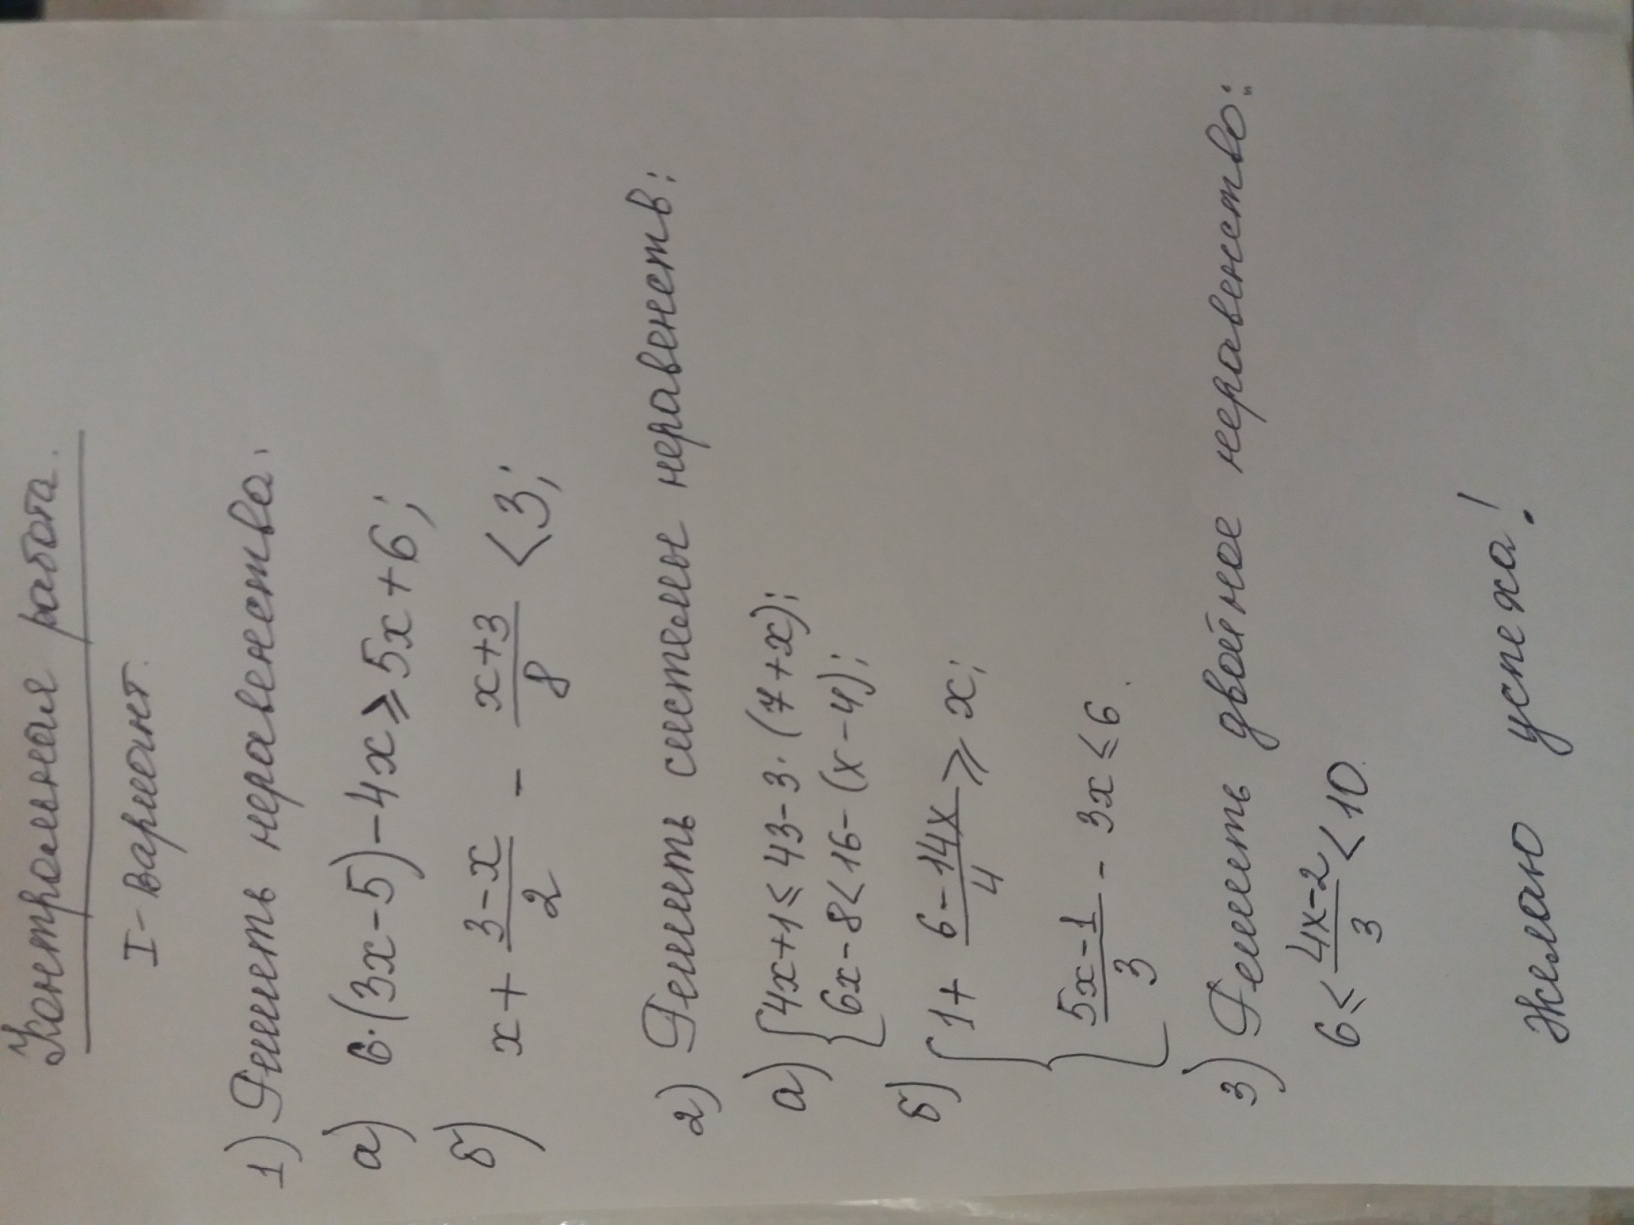 Контрольная работа.
I-вариант.
1) Решить неравенства.
а) 6·(3x-5)-4x⩾5x+6;
б) x + (3-x)/2 - (x+3)/8 <3;
2) Решить системы неравенств:
а) {4x+1≤43-3·(7+x);
{6x-8<16-(x-4);
б) {1+ (6-14x)/4 ⩾x;
{(5x-1)/3 - 3x≤6.
3) Решить двойное неравенство:
6≤ (4x-2)/3 <10.
Желаю успеха!